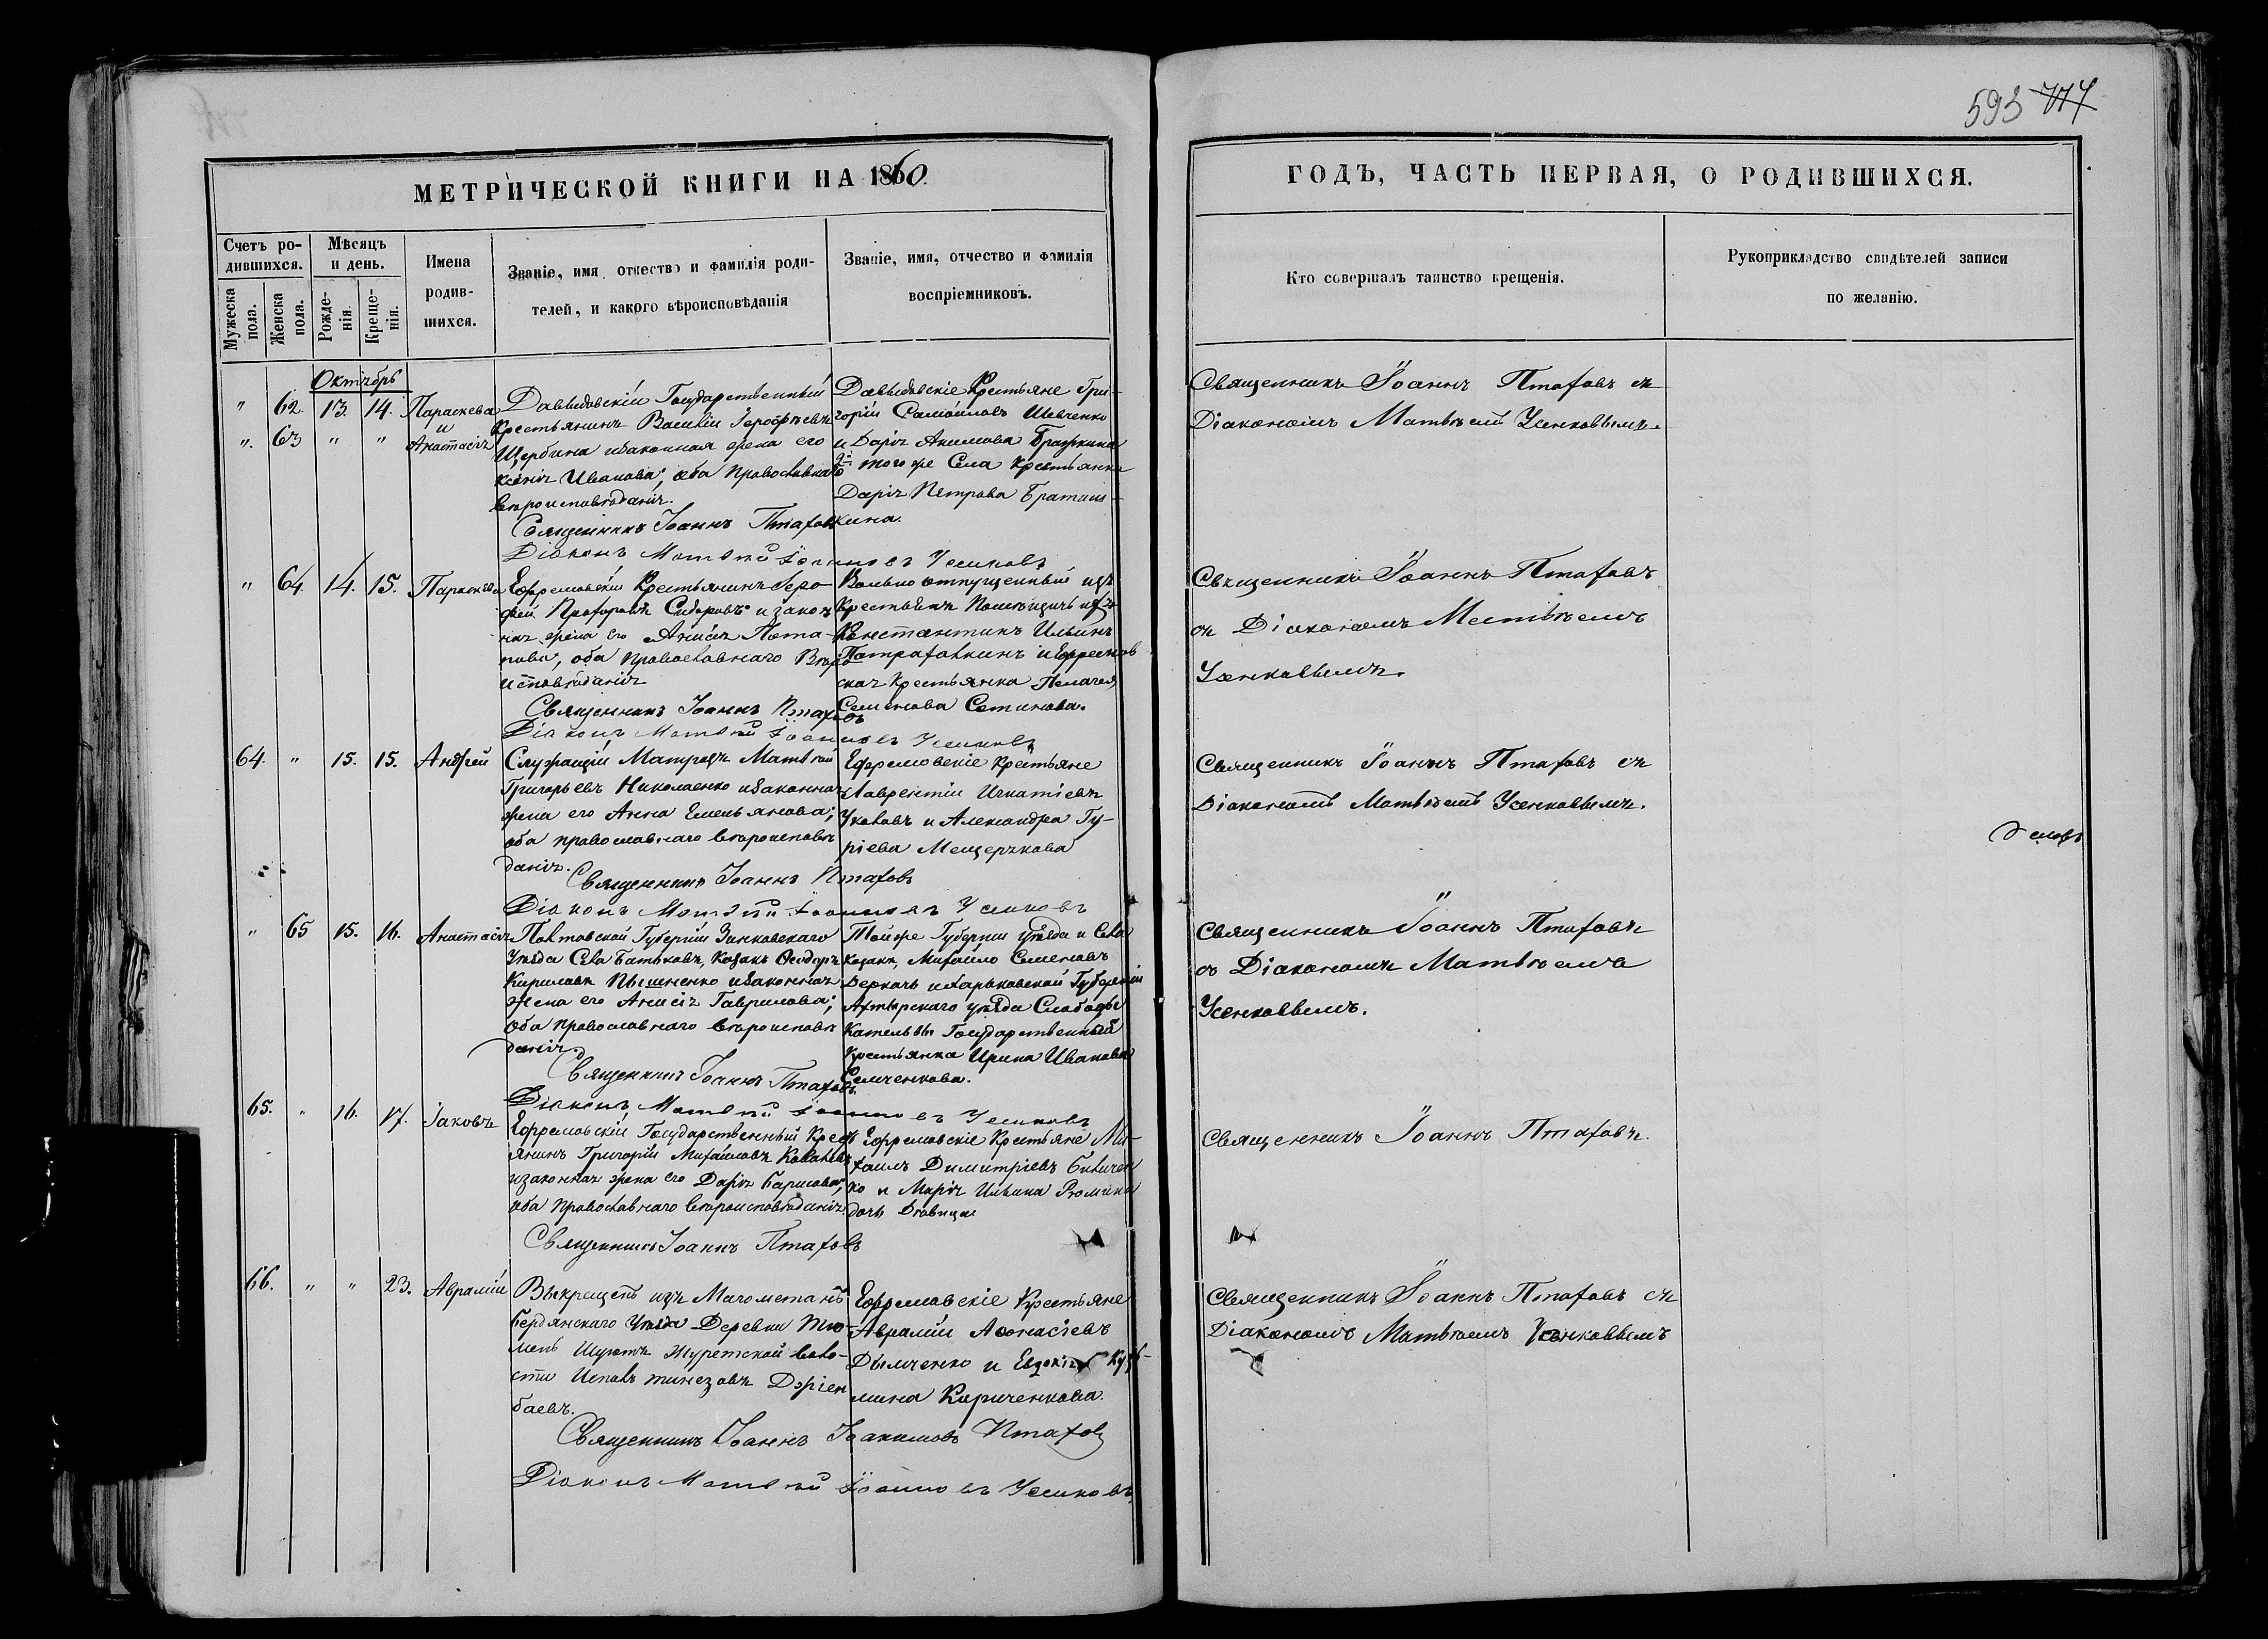 593 717
МЕТРИЧЕСКОЙ КНИГИ НА 1860.
ГОДЪ, ЧАСТЬ ПЕРВАЯ, О РОДИВШИХСЯ.
Счетъ ро-
дившихся.
Мужеска пола.
Женска пола.
Мѣсяцъ
и день.
Рожде-
нія.
Креще-
нія.
Имена
родив-
шихся.
Званіе, имя отчество и фамилія роди-
телей, и какого вѣроисповѣданія
Званіе, имя, отчество и фамилія
воспріемниковъ.
Кто совершалъ таинство крещенія.
Рукоприкладство свидѣтелей записи
по желанію.
Октябрь
" 62. 13. 14. Параскева
и
". 63 " " Анастасія
Давыдовскій Государственный
Крестьянинъ Василій
Щербина и законная жена его
Ксенія Иванова, оба православнаго
вѣроисповѣданія.
Священникъ Іоаннъ Птаховъ
Діаконъ Матвѣй Іоанновъ Усенковъ
Давыдовскіе Крестьяне Гри-
горій Самойловъ Шевченко
и Дарія Акимова Бражкина
2й того же Села Крестьянка
Дарія Петрова Братиш-
кина.
Священникъ Іоаннъ Птаховъ съ
Діакономъ Матвѣемъ Усенковымъ.
" 64. 14. 15. Параскева
Ефремовскій Крестьянинъ
Сидоровъ и закон
ная жена его Анисія Пота-
пова, оба православнаго Вѣро
исповѣданія
Священникъ Іоаннъ Птаховъ
Діаконъ Матвѣй Іоанновъ Усенковъ
Вольно отпущенный изъ
Крестьянъ
Константинъ Ильинъ
и Ефремов
ская Крестьянка Пелагея
Семенова Сетинова.
Священникъ Іоаннъ Птаховъ
съ Діакономъ Матвѣемъ
Усенковымъ.
64. " 15. 15. Андрей
Служащій Матрозъ Матвѣй
Григорьевъ Николаенко и законная
жена его Анна Емельянова;
оба православнаго вѣроисповѣ
данія.
Священникъ Іоаннъ Птаховъ
Діаконъ Матвѣй Іоанновъ Усенковъ
Ефремовскіе Крестьяне
Лаврентій Игнатіевъ
Уколовъ и Александра Гу-
ріева Мещерякова
Священникъ Іоаннъ Птаховъ съ
Діакономъ Матвѣемъ Усенковымъ.
" 65 15. 16. Анастасія
Полтавской Губерніи Зинковскаго
Уѣзда Села Батькова, Козакъ Ѳеодоръ
Кириловъ Пышненко и законная
жена его Анисія Гаврилова;
оба православнаго вѣроисповѣ
данія.
Священникъ Іоаннъ Птаховъ.
Діаконъ Матвѣй Іоанновъ Усенковъ
Той же Губерніи уѣзда и Села
Козакъ, Михайло Семеновъ
Деркачь и Харьковской Губерніи
Ахтырскаго уѣзда Слободы
Котельвы Государственный
Крестьянка Ирина Иванова
Семченкова.
Священникъ Іоаннъ Птаховъ
съ Діакономъ Матвѣемъ
Усенковымъ.
65. " 16. 17. Іаковъ
Ефремовскій Государственный Крест
янинъ Григорій Михайловъ Ковалевъ
и законная жена его Дарія Борисова;
оба православнаго вѣроисповѣданія.
Священникъ Іоаннъ Птаховъ
Ефремовскіе Крестьяне Ми-
хаилъ Димитріевъ Биличен
ко и Марія Ильина Рюмина
дочь Дѣвица
Священникъ Іоаннъ Птаховъ.
66. " " 23. Аврамій
Выкрещенъ изъ Магометанъ
Бердянскаго Уѣзда Деревни Тю-
мень Шуютъ Журетской воло-
сти
баевъ.
Священникъ Іоаннъ Іоакимовъ Птаховъ
Діаконъ Матвѣй Іоанновъ Усенковъ
Ефремовскіе Крестьяне
Аврамій Аѳонасіевъ
Дымченко и Евдокія Кузь-
мина Кириченкова.
Священникъ Іоаннъ Птаховъ съ
Діакономъ Матвѣемъ Усенковымъ